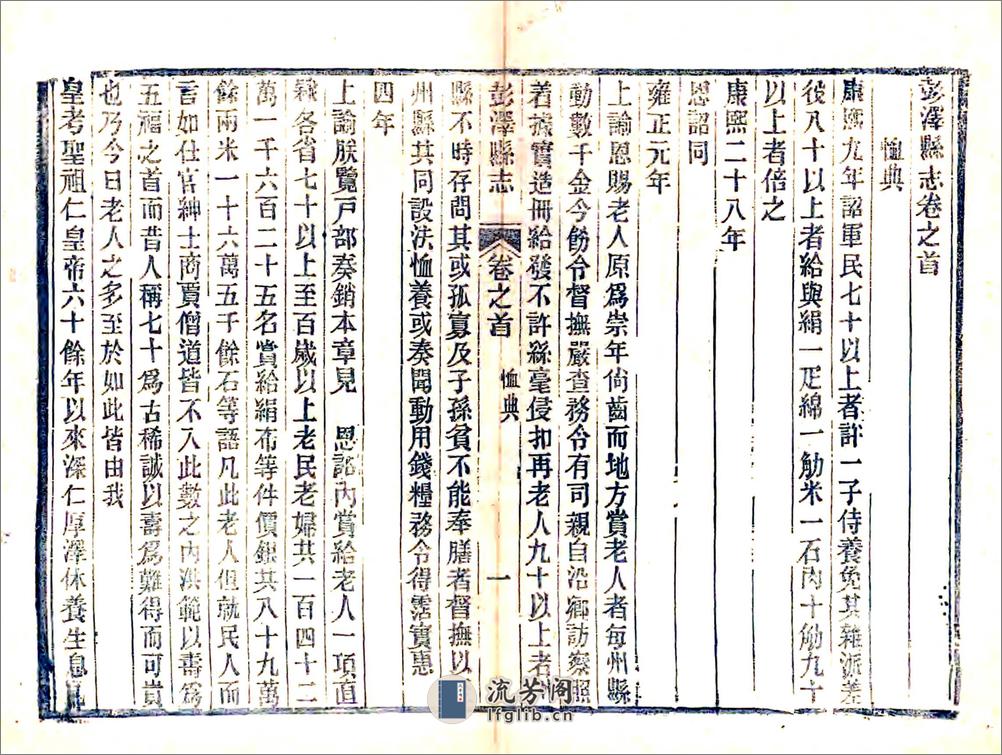 彭澤縣志卷之首
恤典
康熙九年詔軍民七十以上者許一子侍養免其雜派差
役八十以上者給與絹一疋綿一觔米一石肉十觔九十
以上者倍之
康熙二十八年
恩詔同
雍正元年
上諭恩賜老人原爲崇年尙齒而地方賞老人者每州縣
動數千金今飭令督撫嚴查務令有司親自沿鄉訪察照
着據實造冊給發不許絲毫侵扣再老人九十以上者
彭澤縣志 卷之首 恤典 一
縣不時存問其或孤寡及子孫貧不能奉膳者督撫以
州縣其同設法恤養或奏聞動用錢糧務令得霑實惠
四年
上諭朕覽戸部奏銷本章見 恩詔内賞給老人一項直
隸各省七十以上至百歲以上老民老婦共一百四十二
萬一千六百二十五名賞給絹布等件價銀共八十九萬
餘兩米一十六萬五千餘石等語凡此老人但就民人而
言如仕官紳士商賈僧道皆不入此數之内洪範以壽爲
五福之首而昔人稱七十爲古稀誠以壽爲難得而可貴
也乃今日老人之多至於如此皆由我
皇考聖祖仁皇帝六十餘年以來深仁厚澤休養生息
流芳閣
lfglib.cn